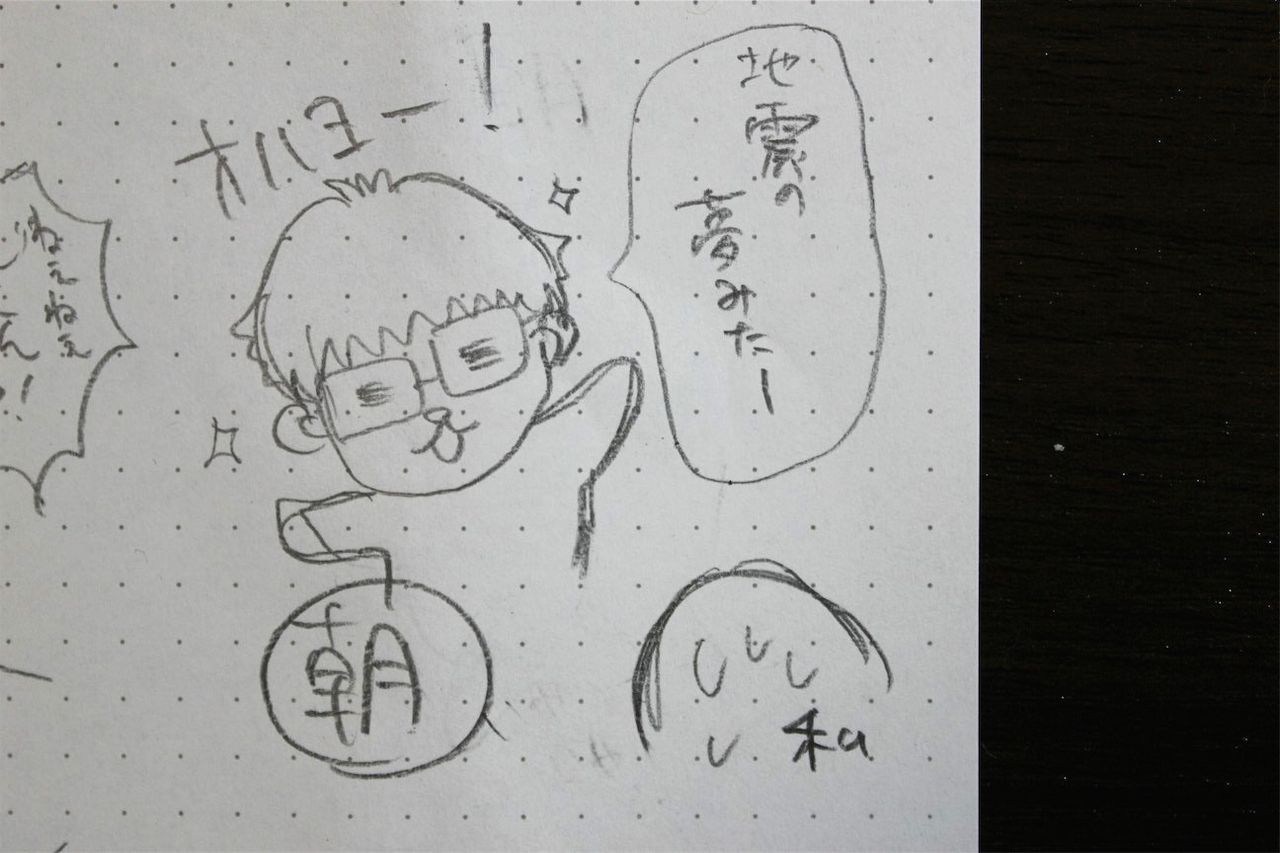 オハヨー!
地震の
夢みたー
ねぇねぇ
朝
私